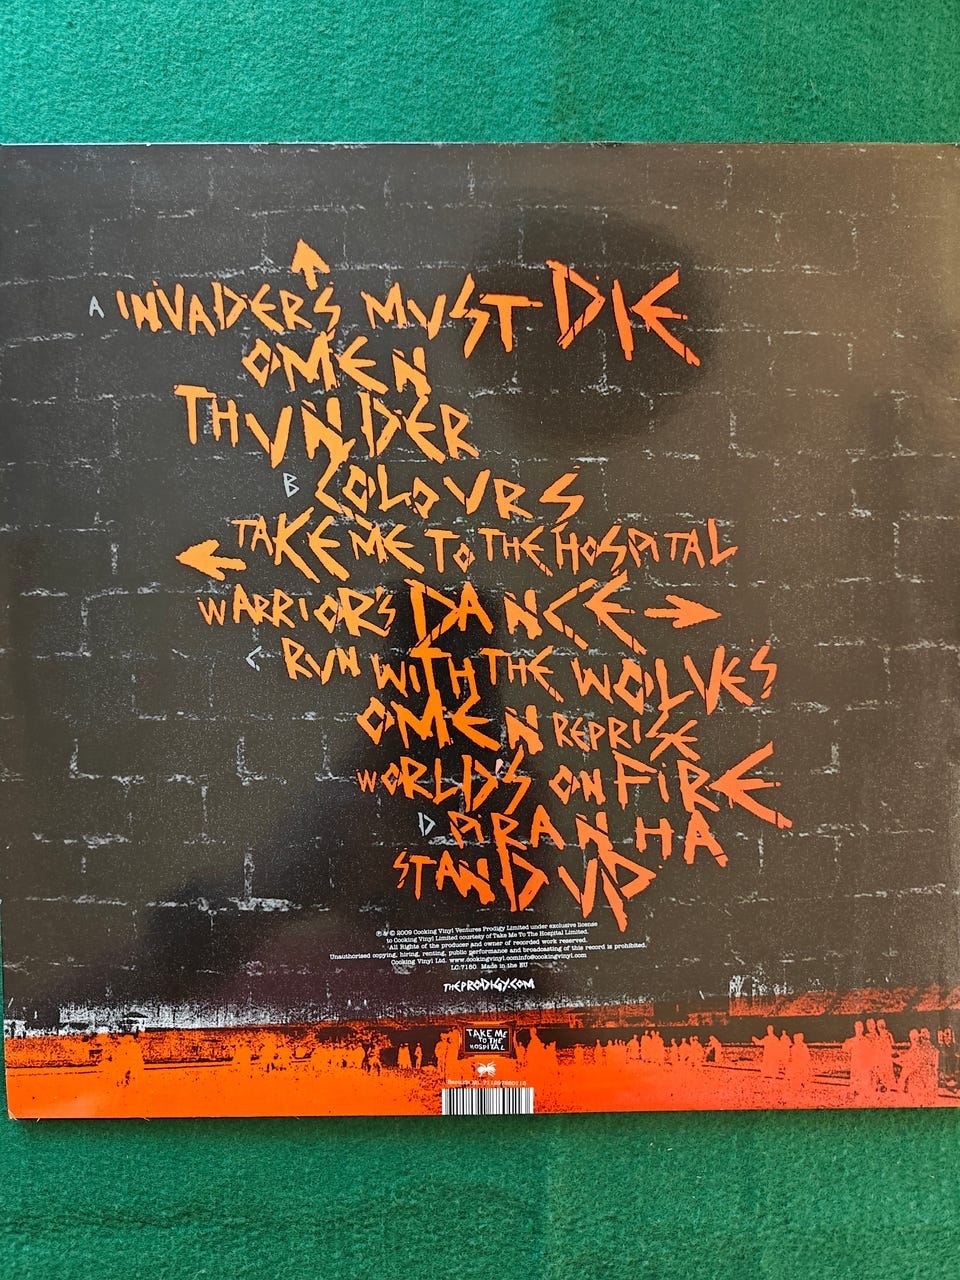 A INVADERS MUST DIE
OMEN
THUNDER
B COLOURS
TAKE ME TO THE HOSPITAL
WARRIOR'S DANCE
C RUN WITH THE WOLVES
OMEN REPRISE
WORLD'S ON FIRE
D PIRANHA
STAND UP
℗ & © 2009 Cooking Vinyl Ventures Prodigy Limited under exclusive license
to Cooking Vinyl Limited courtesy of Take Me To The Hospital Limited.
All Rights of the producer and owner of recorded work reserved.
Unauthorised copying, hiring, renting, public performance and broadcasting of this record is prohibited.
Cooking Vinyl Ltd. www.cookingvinyl.cominfo@cookingvinyl.com
LC:7180 Made in the EU
THEPRODIGY.COM
TAKE ME
TO THE
HOSPITAL